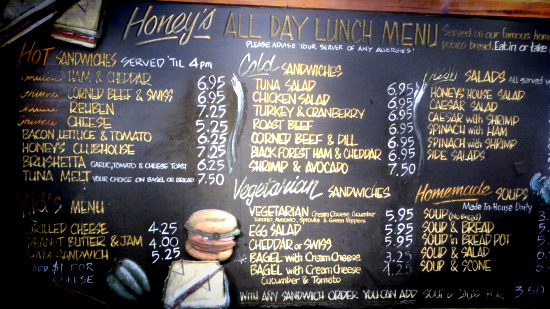 Honey's ALL DAY LUNCH MENU
Served on our famous home
potato bread. Eat in or take
PLEASE ADVISE YOUR SERVER OF ANY ALLERGIES!
HOT SANDWICHES SERVED 'TIL 4pm
HAM & CHEDDAR 6.95
CORNED BEEF & SWISS 6.95
REUBEN 7.25
CHEESE 5.25
BACON LETTUCE & TOMATO 6.75
HONEY'S CLUBHOUSE 7.95
BRUSHETTA GARLIC, TOMATO & CHEESE TOAST 6.25
TUNA MELT YOUR CHOICE ON BAGEL OR BREAD 7.50
KID'S MENU
GRILLED CHEESE 4.25
PEANUT BUTTER & JAM 4.00
HAM SANDWICH 5.25
ADD $1 FOR
CHEESE
Cold SANDWICHES
TUNA SALAD 6.95
CHICKEN SALAD 6.95
TURKEY & CRANBERRY 6.95
ROAST BEEF 6.95
CORNED BEEF & DILL 6.95
BLACK FOREST HAM & CHEDDAR 6.95
SHRIMP & AVOCADO 7.50
Vegetarian SANDWICHES
VEGETARIAN Cream Cheese, Cucumber 5.95
Tomato, Avocado, Sprouts & Green Peppers
EGG SALAD 5.95
CHEDDAR or SWISS 5.95
BAGEL with Cream Cheese 3.25
BAGEL with Cream Cheese 4.25
Cucumber & Tomato
WITH ANY SANDWICH ORDER YOU CAN ADD SOUP 3.50
Fresh SALADS All served
HONEYS HOUSE SALAD
CAESAR SALAD
CAESAR with SHRIMP
SPINACH with HAM
SPINACH with SHRIMP
SIDE SALADS
Homemade SOUPS
Made In-House Daily
SOUP (No Bread)
SOUP & BREAD
SOUP in BREAD POT
SOUP & SALAD
SOUP & SCONE